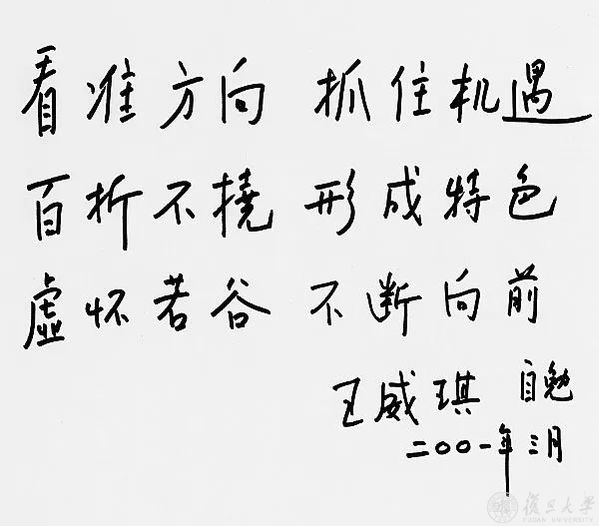 看准方向 抓住机遇
百折不撓 形成特色
虚怀若谷 不断向前
王威琪 自勉
二〇〇一年三月
復旦大学
FUDAN UNIVERSITY